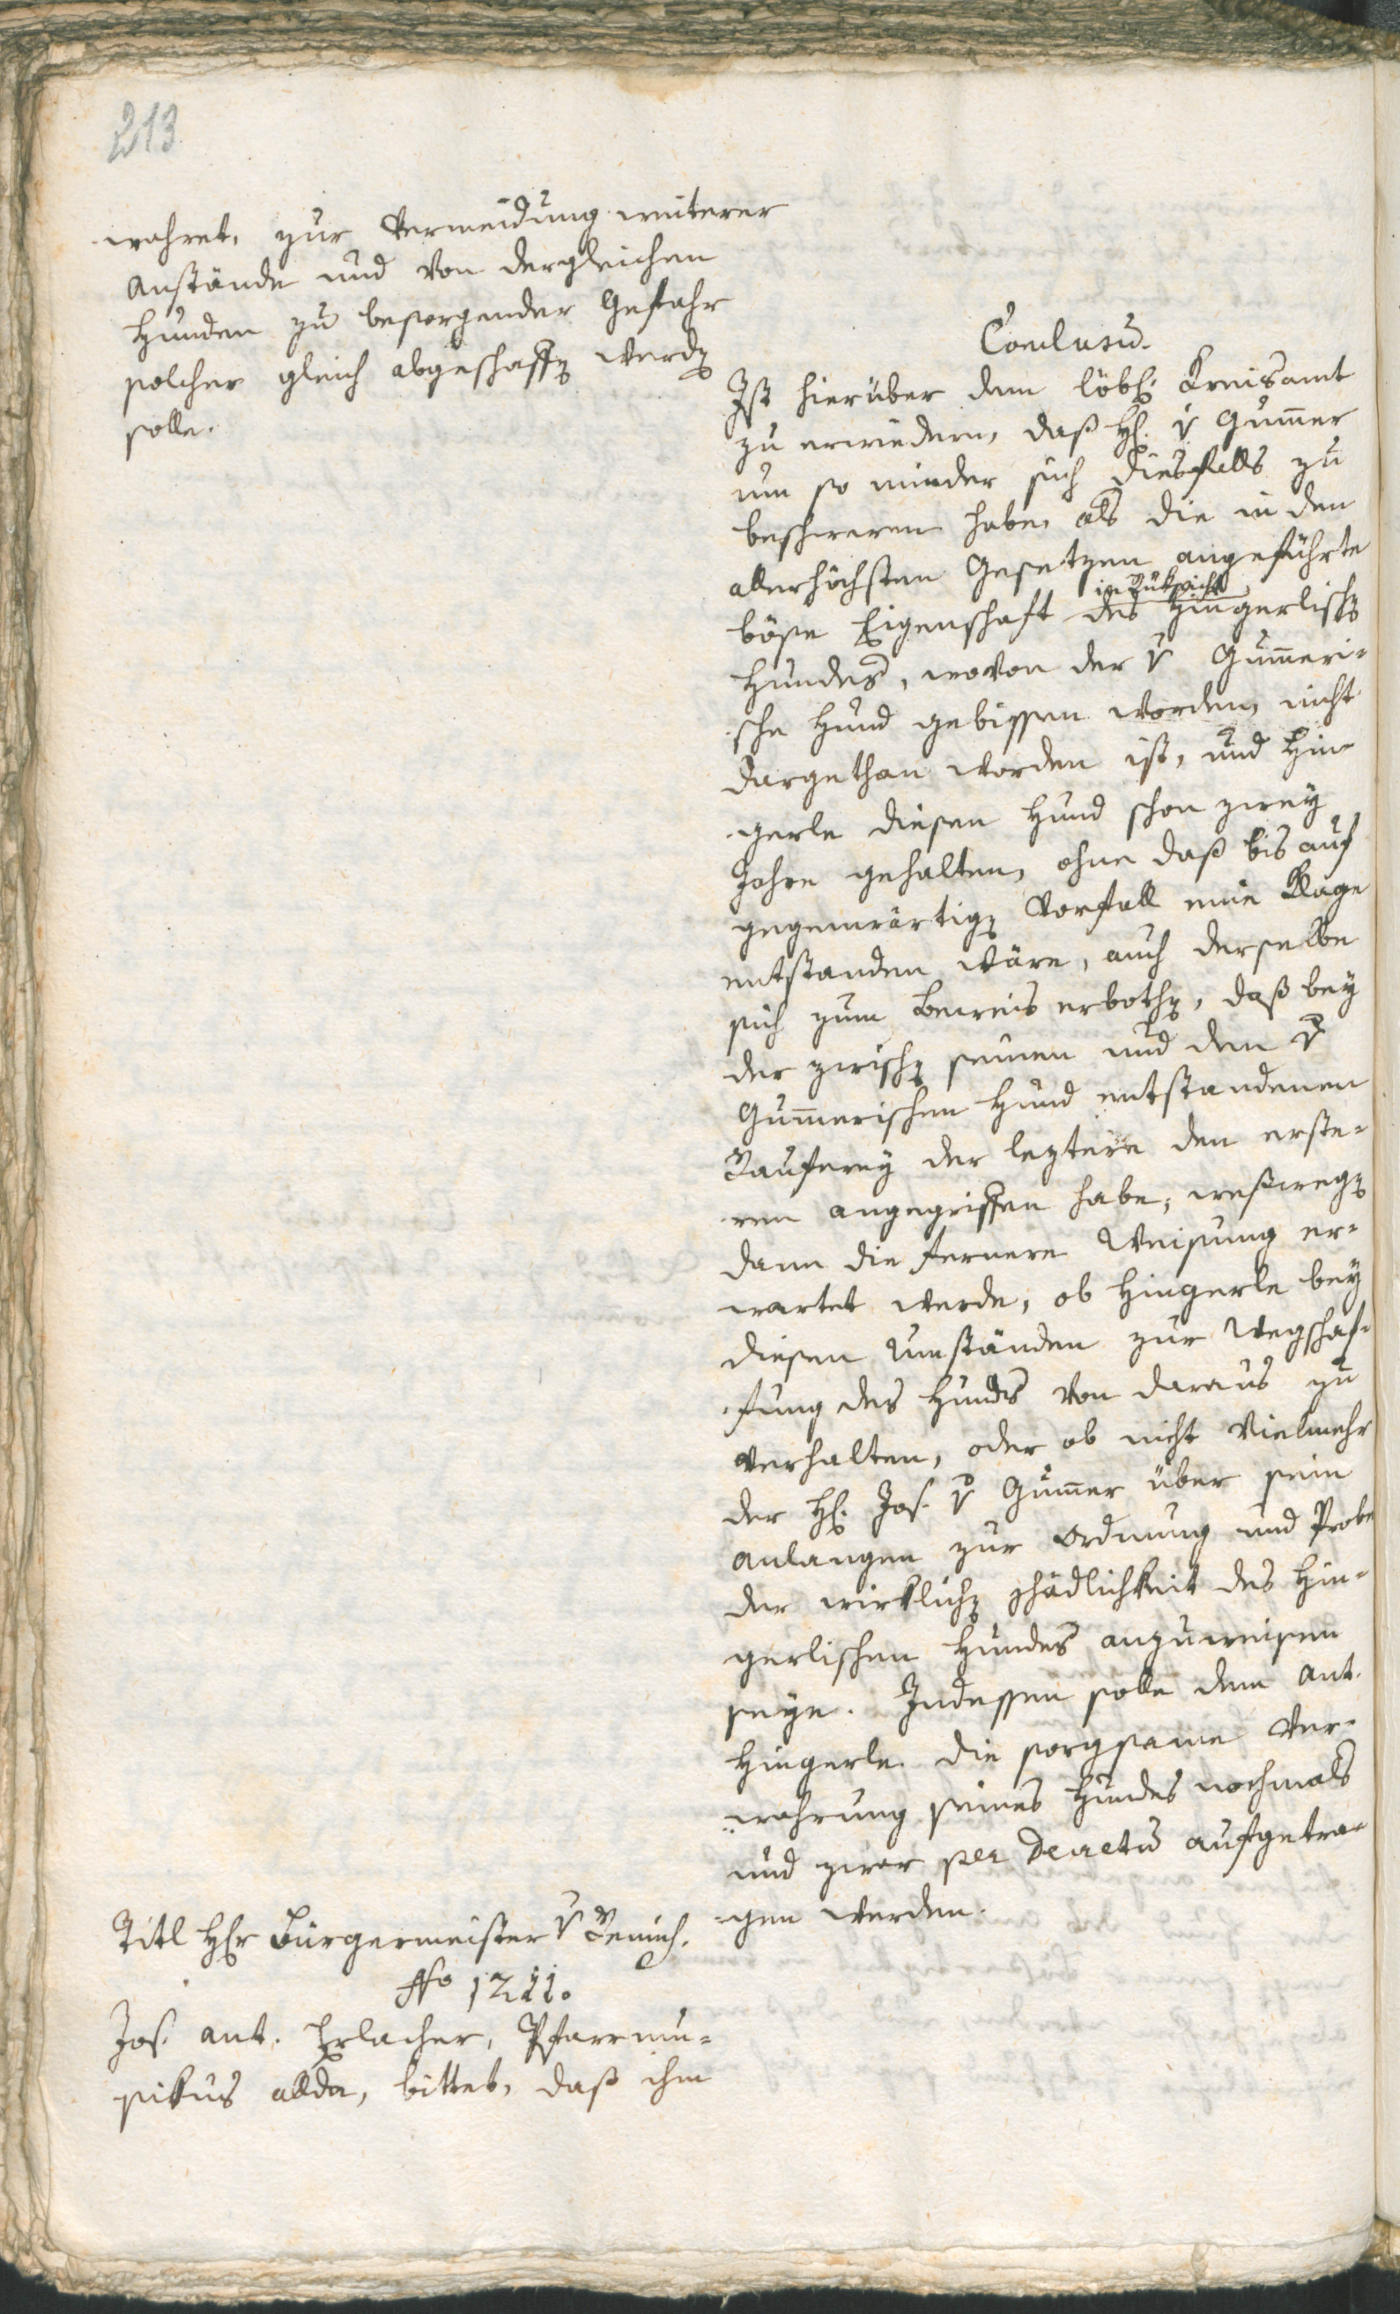 213
wahret, zur Vermeidung weiterer
Anstände und von dergleichen
Hunden zu besorgender Gefahr
solcher gleich abgeschaffen werden
solle.
Conclusu.
Ist hierüber dem löbl. Kreisamt
zu erwiedern, daß H. v Gum̅er
um so minder sich diesfalls zu
beschweren habe, als die in den
allerhöchsten Gesetzen angeführte
böse Eigenschaft in Rüksicht des Hingerlischen
Hundes, wovon der v Gum̅eri-
sche Hund gebissen worden, nicht
dargethan worden ist, und Hin-
gerle diesen Hund schon zwey
Jahre gehalten, ohne daß bis auf
gegenwärtigen Vorfall eine Klage
entstanden wäre, auch derselbe
sich zum Beweis erbothen, daß bey
der zwischen seinen und dem v
Gum̅erischen Hund entstandenen
Rauferey der leztere den erste-
ren angegriffen habe, weßwegen
dann die fernere Weisung er-
wartet werde, ob Hingerle bey
diesen Umständen zur Wegschaf-
fung des Hunds von daraus zu
verhalten, oder ob nicht vielmehr
der H. Jos. v Gum̅er über sein
Anlangen zur Ordnung und Probe
der wirklichen schädlichkeit des Hin-
gerlischen Hundes anzuweisen
seye. Indessen solle dem Ant.
Hingerle die sorgsame Ver-
wahrung seines Hundes nochmals
und zwar per Decretu aufgetra-
gen werden.
Titl Hr Bürgermeister v
No 1211.
Jos. Ant. Erlacher, Pfarrmu-
sikus allda, bittet, daß ihm